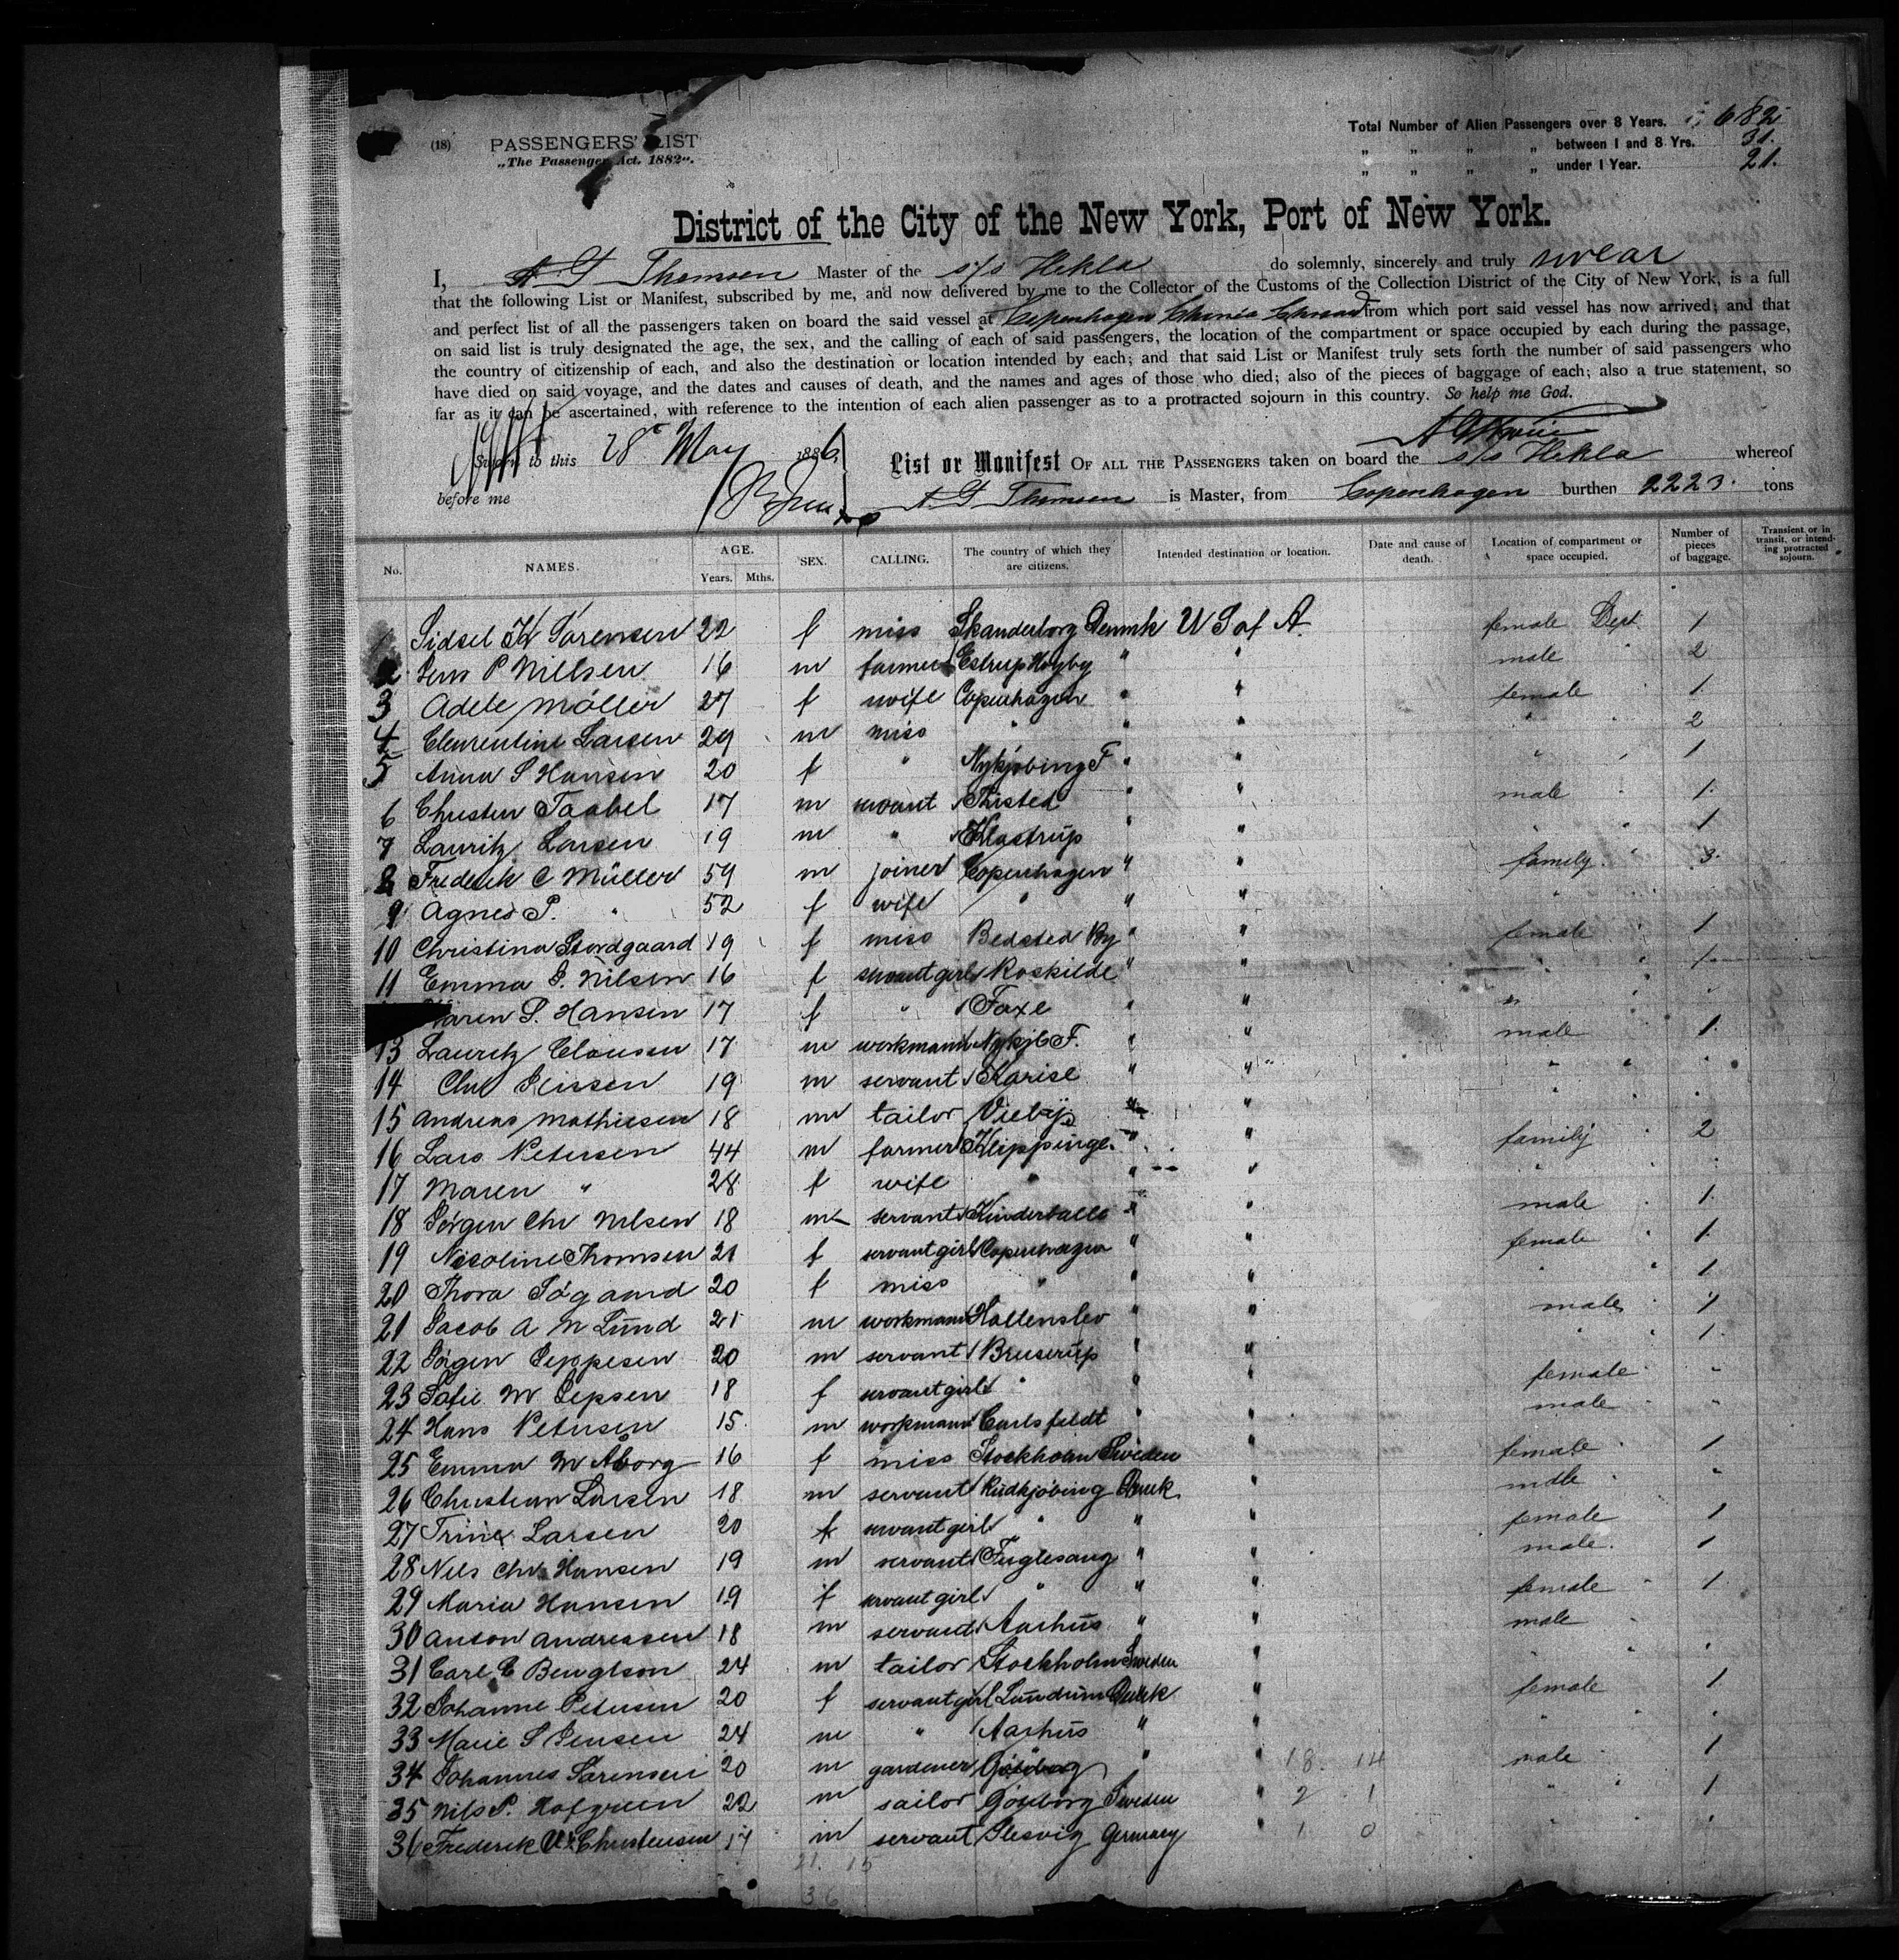 (18) PASSENGERS' LIST
„The Passenger Act. 1882".
Total Number of Alien Passengers over 8 Years. 682
„ „ „ „ between 1 and 8 Yrs. 31.
„ „ „ „ under 1 Year. 21.
District of the City of the New York, Port of New York.
I, A G Thomsen Master of the s/s Hekla do solemnly, sincerely and truly swear
that the following List or Manifest, subscribed by me, and now delivered by me to the Collector of the Customs of the Collection District of the City of New York, is a full
and perfect list of all the passengers taken on board the said vessel at Copenhagen from which port said vessel has now arrived; and that
on said list is truly designated the age, the sex, and the calling of each of said passengers, the location of the compartment or space occupied by each during the passage,
the country of citizenship of each, and also the destination or location intended by each; and that said List or Manifest truly sets forth the number of said passengers who
have died on said voyage, and the dates and causes of death, and the names and ages of those who died; also of the pieces of baggage of each; also a true statement, so
far as it can be ascertained, with reference to the intention of each alien passenger as to a protracted sojourn in this country. So help me God.
Sworn to this 28 May 1886
before me
List or Manifest OF ALL THE PASSENGERS taken on board the s/s Hekla whereof
A G Thomsen is Master, from Copenhagen burthen 2223. tons
No. NAMES. AGE. Years. Mths. SEX. CALLING. The country of which they are citizens. Intended destination or location. Date and cause of death. Location of compartment or space occupied. Number of pieces of baggage. Transient or in transit, or intending protracted sojourn.
Sidsel Sörensen 22 f miss Skanderborg Denmk U S of A. female Dept 1
2 Jens P Nielsen 16 m farmer Estrup Høyby " " male 2
3 Adele Möller 27 f wife Copenhagen " " female 1
4 Clementine Larsen 29 m miss " " " " 2
5 Anna S Hansen 20 f " Nykjøbing F " " " 1
6 Christen Taabel 17 m servant Thisted " " male 1
7 Lauritz Larsen 19 m " Klastrup " " " 1
8 Frederik C Müller 59 m joiner Copenhagen " " family 3
9 Agnes P. " 52 f wife " " " "
10 Christina Stordgaard 19 f miss Bedsted By " " female 1
11 Emma S. Nilsen 16 f servant girl Roskilde " " " 1
Karen S. Hansen 17 f " Faxe " " " "
13 Lauritz Clausen 17 m workmann Nykjb F. " " male 1
14 Chr 19 m servant Karise " " " "
15 Andreas Mathiesen 18 m tailor " " "
16 Lars Petersen 44 m farmer Klippinge " " family 2
17 Maren " 28 f wife " " " "
18 Jörgen Chr Nilsen 18 m servant " " male 1
19 Nicoline Thomsen 21 f servant girl Copenhagen " " female 1
20 Thora Søgaard 20 f miss " " " " 1
21 Jacob A N Lund 21 m workmann Hallenslev " " male 1
22 Jörgen Jeppesen 20 m servant Bruserup " " " 1
23 Sofie M Jepsen 18 f servant girl " " " female "
24 Hans Petersen 15 m workmann Carlsfeldt " " male "
25 Emma M Åborg 16 f miss Stockholm Sweden " female 1
26 Christian Larsen 18 m servant Rudkjöbing Dmrk " male "
27 Trine Larsen 20 f servant girl " " " female 1
28 Nils Chr Hansen 19 m servant Fuglesang " " male 1
29 Maria Hansen 19 f servant girl " " " female 1
30 Anton Andressen 18 m servant Aarhus " " male
31 Carl C Bengtson 24 m tailor Stockholm Sweden " "
32 Johanne Petersen 20 f servant girl Lundum Dmrk " female 1
33 Marie S Jensen 24 m " Aarhus " " " "
34 Johannes Sörensen 20 m gardener " " 18. 14 male 1
35 Nils P. Hofgreen 22 m sailor Göteborg Sweden " 2 1 " 1
36 Frederik Christensen 17 m servant Slesvig Germany " 1 0 " 1
21. 15
36